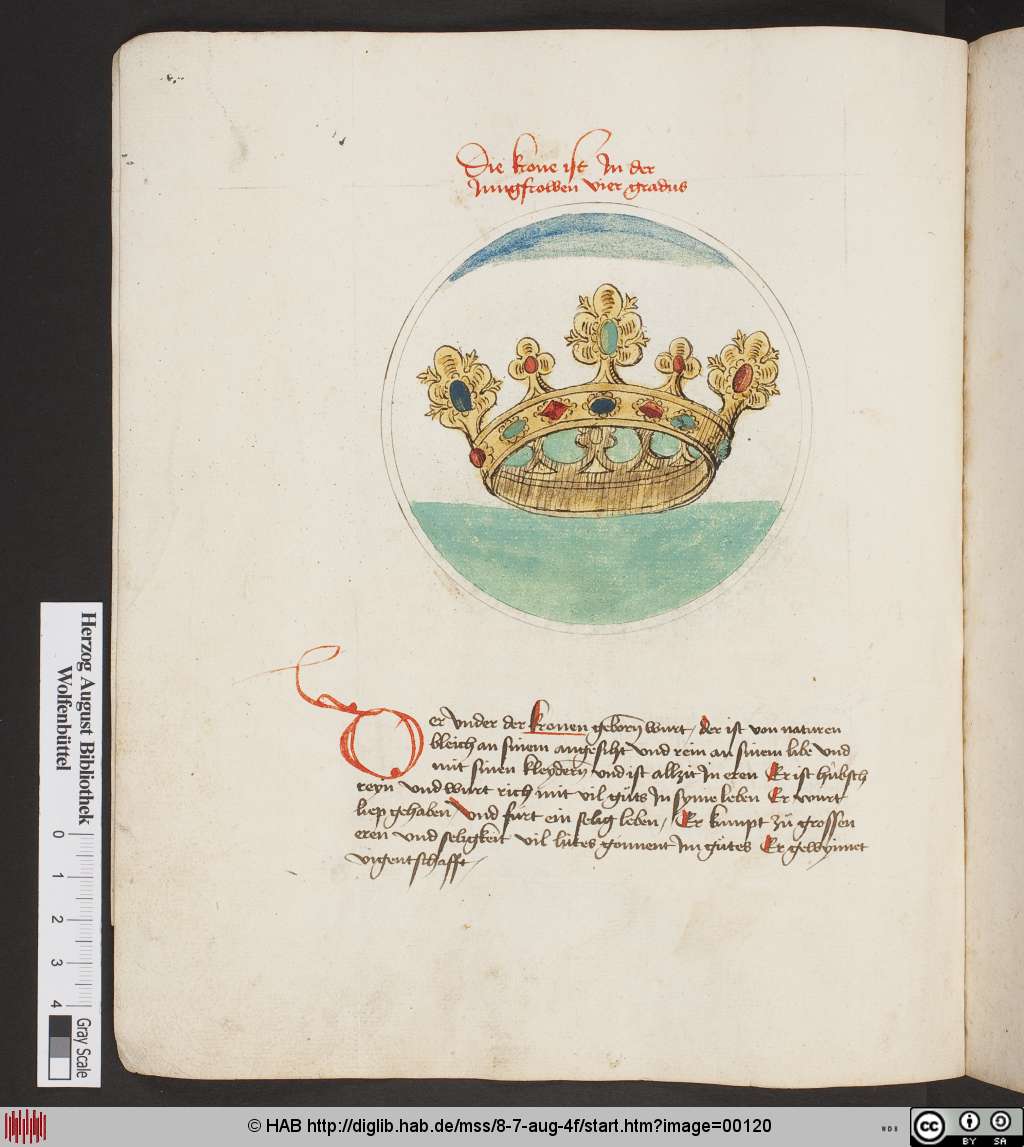 Die krone ist In der
Jungfrowen vier gradus
Der vnder der kronen geborn wurt / der ist von naturen
bleich an sinem angesiht vnd rein an sinem libe vnd
mit sinen kleydern vnd ist allzit In eren Er ist hübsch
reyn vnd wurt rich mit vil güts In syme leben Er wurt
liep gehaben / vnd fürt ein selig leben / Er kumpt zü grossen
eren vnd seligkeit vil lütes gönnent Im gütes Er gewynnet
vigentschafft /
Herzog August Bibliothek
Wolfenbüttel
0 1 2 3 4
Gray Scale
© HAB http://diglib.hab.de/mss/8-7-aug-4f/start.htm?image=00120
WDB
cc BY SA